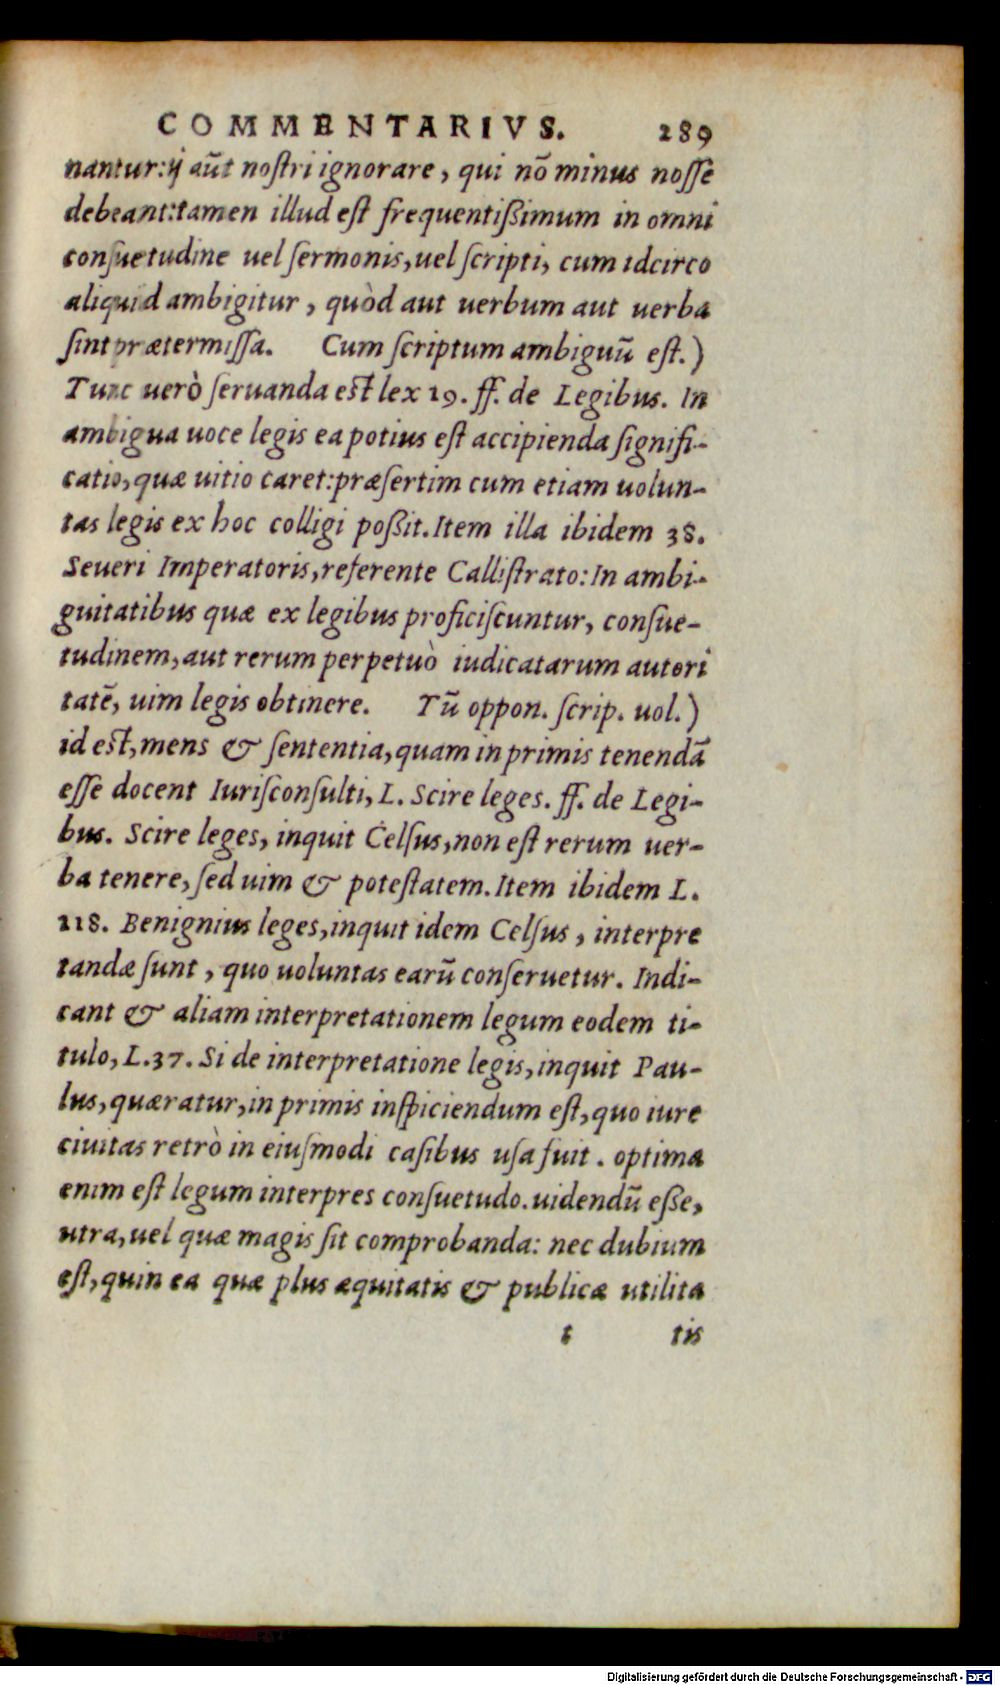 COMMENTARIVS. 289
nantur: ij aūt noſtri ignorare, qui nō minus noſſe
debeant: tamen illud eſt frequentißimum in omni
conſuetudine uel ſermonis, uel ſcripti, cum idcirco
aliquid ambigitur, quòd aut uerbum aut uerba
ſint prætermiſſa. Cum ſcriptum ambiguū eſt.)
Tunc uerò ſeruanda eſt lex 19. ff. de Legibus. In
ambigua uoce legis ea potius eſt accipienda ſignifi-
catio, quæ uitio caret: præſertim cum etiam uolun-
tas legis ex hoc colligi poßit. Item illa ibidem 38.
Seueri Imperatoris, referente Calliſtrato: In ambi-
guitatibus quæ ex legibus proficiſcuntur, conſue-
tudinem, aut rerum perpetuò iudicatarum autori
tatē, uim legis obtinere. Tū oppon. ſcrip. uol.)
id eſt, mens & ſententia, quam in primis tenendā
eſſe docent Iuriſconſulti, L. Scire leges. ff. de Legi-
bus. Scire leges, inquit Celſus, non eſt rerum uer-
ba tenere, ſed uim & poteſtatem. Item ibidem L.
118. Benignius leges, inquit idem Celſus, interpre
tandæ ſunt, quo uoluntas earū conſeruetur. Indi-
cant & aliam interpretationem legum eodem ti-
tulo, L. 37. Si de interpretatione legis, inquit Pau-
lus, quæratur, in primis inſpiciendum eſt, quo iure
ciuitas retrò in eiuſmodi caſibus uſa fuit. optima
enim eſt legum interpres conſuetudo. uidendū eße,
utra, uel quæ magis ſit comprobanda: nec dubium
eſt, quin ea quæ plus æquitatis & publicæ utilita
t tis
Digitalisierung gefördert durch die Deutsche Forschungsgemeinschaft - DFG